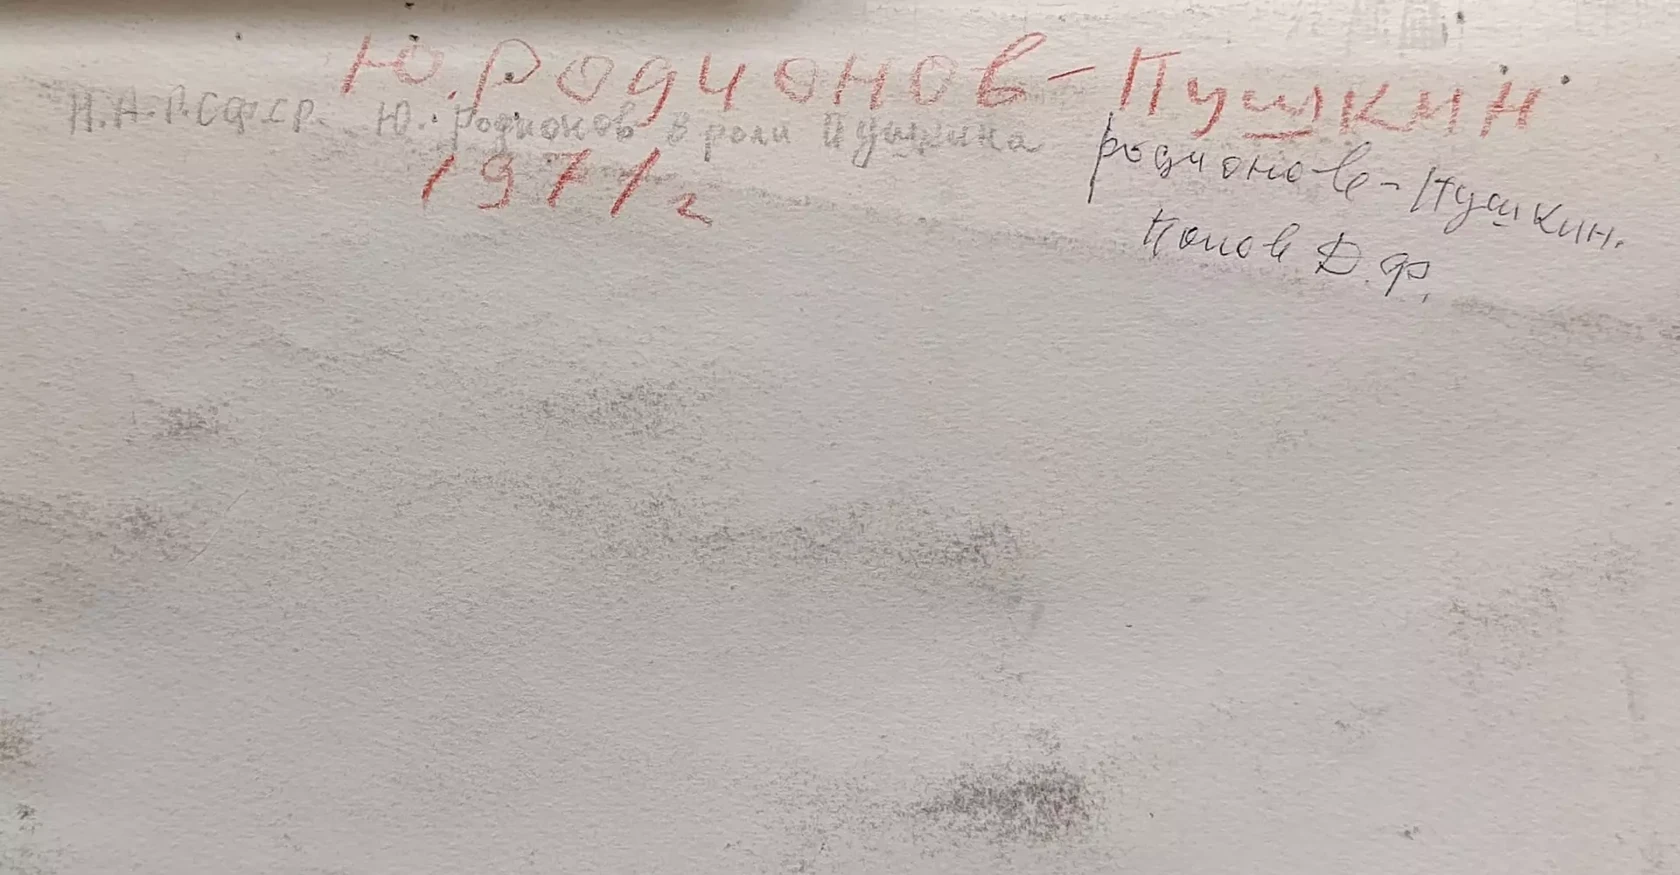 Ю. Родионов - Пушкин
Н.А.Р.СФСР. Ю. Родионов в роли Пушкина
1971 г
родионов - Пушкин.
Попов Д.Ф.